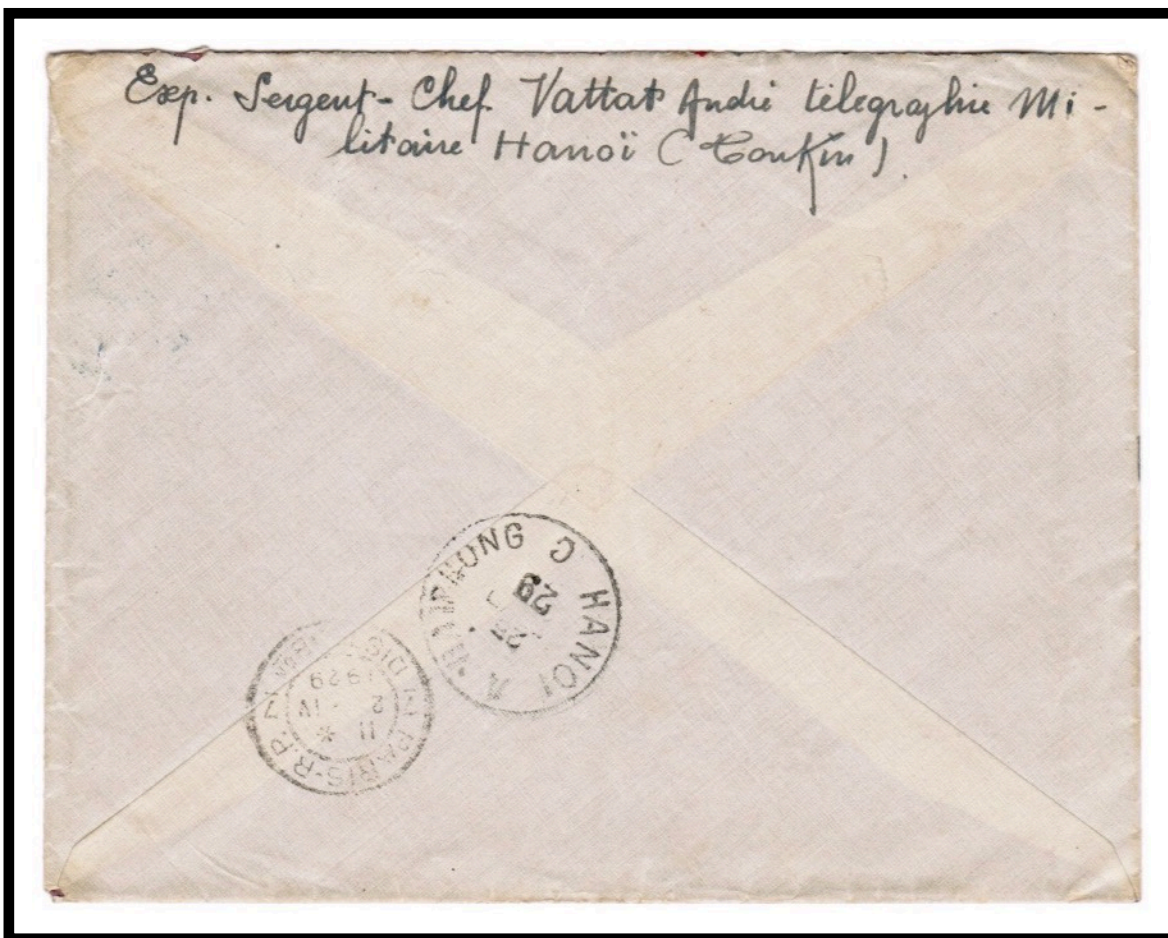 Exp. Sergent-Chef Vattat André télégraphie Mi-
litaire Hanoï (Tonkin).
HANOI A HAIPHONG C
29
PARIS-R.P.
DISTR
11 *
2 - IV
1929